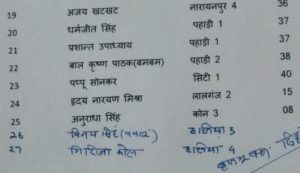 19 अजय खटखट नारायनपुर 4 36
20 धर्मजीत सिंह पहाड़ी 1 37
21 प्रशान्त उपाध्याय पहाड़ी 1 37
22 बाल कृष्ण पाठक(बमबम) पहाड़ी 2 38
23 पप्पू सोनकर सिटी 1 40
24 हृदय नारायण मिश्रा लालगंज 2 15
25 अनुराधा सिंह कोन 3 08
26 विनय
27 गिरिजा